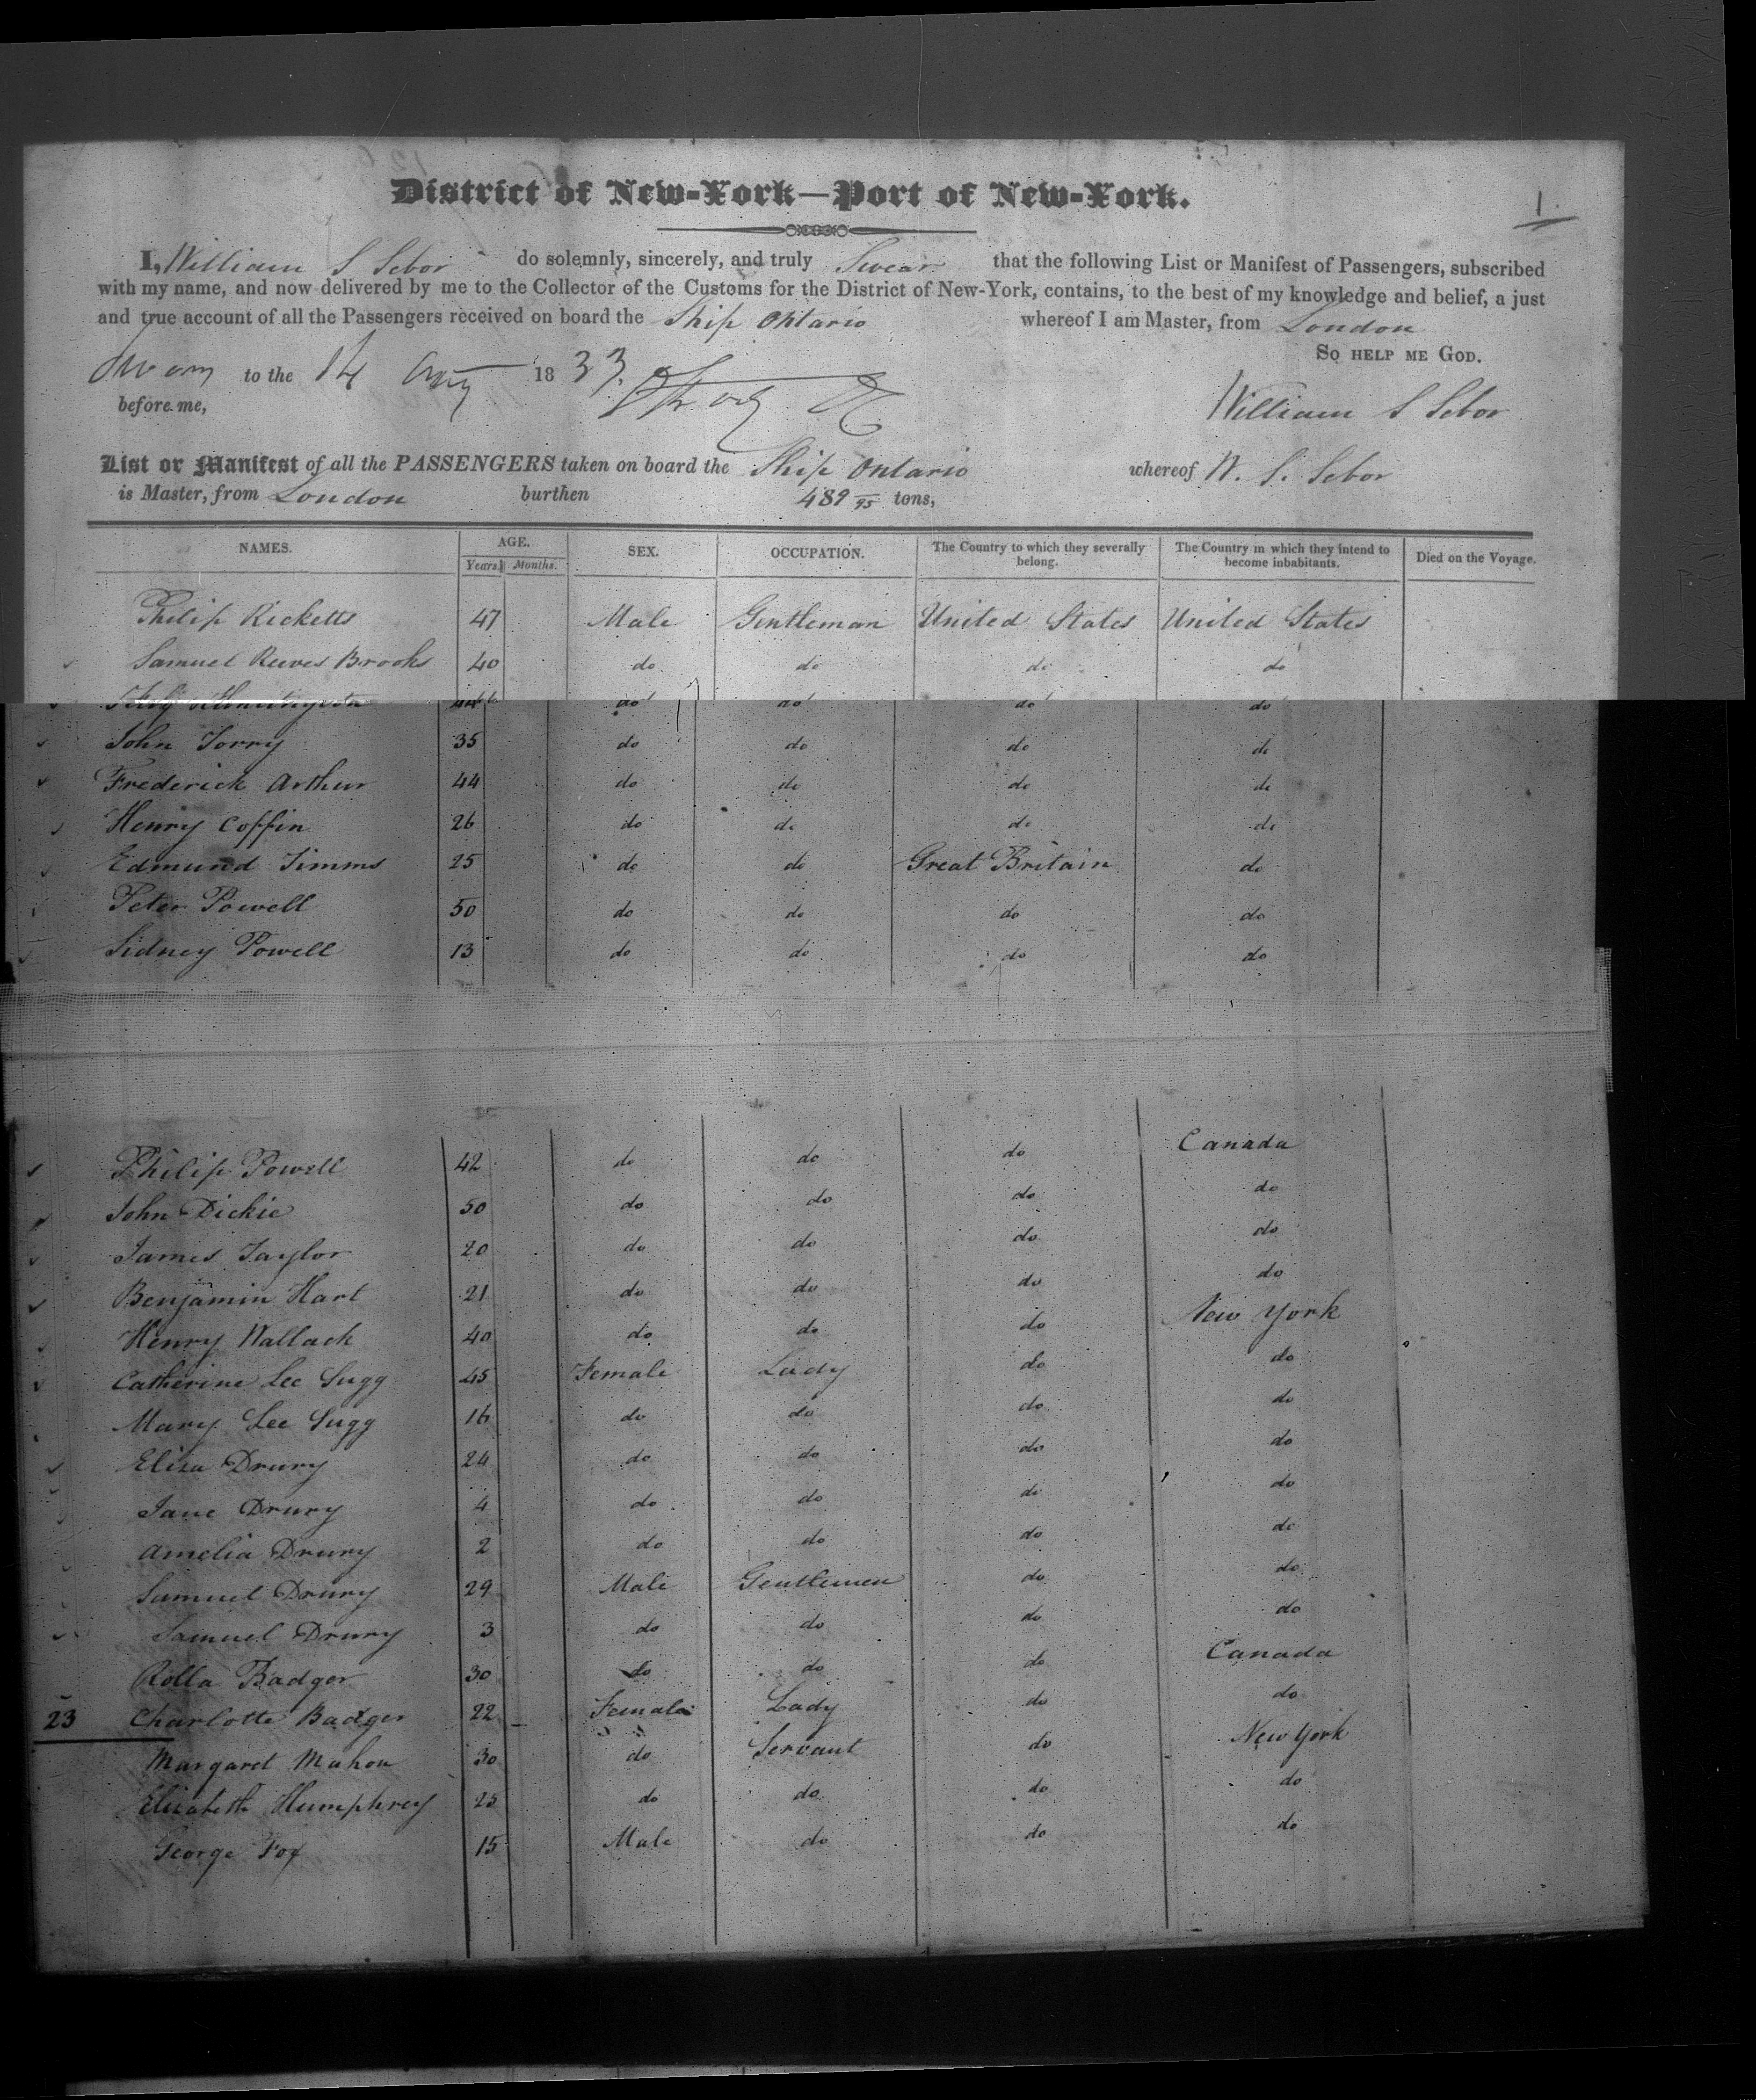 1.
District of New-York—Port of New-York.
I, William S Sebor do solemnly, sincerely, and truly Swear that the following List or Manifest of Passengers, subscribed
with my name, and now delivered by me to the Collector of the Customs for the District of New-York, contains, to the best of my knowledge and belief, a just
and true account of all the Passengers received on board the Ship Ontario whereof I am Master, from London
SO HELP ME GOD.
Sworn to the 14 1833.
before me,
William S Sebor
List or Manifest of all the PASSENGERS taken on board the Ship Ontario whereof W. S. Sebor
is Master, from London burthen 489 /95 tons,
NAMES. AGE. SEX. OCCUPATION. The Country to which they severally belong. The Country in which they intend to become inhabitants. Died on the Voyage.
Years. Months.
Philip Ricketts 47 Male Gentleman United States United States
Samuel Reeves Brooks 40 do do do do
do do do do
John Torry 35 do do do do
Frederick Arthur 44 do do do do
Henry Coffin 26 do do do do
Edmund Timms 25 do do Great Britain do
Peter Powell 50 do do do do
Sidney Powell 13 do do do do
Philip Powell 42 do do do Canada
John Dickie 50 do do do do
James Taylor 20 do do do do
Benjamin Hart 21 do do do do
Henry Wallack 40 do do do New York
Catherine Lee Sugg 45 Female Lady do do
Mary Lee Sugg 16 do do do do
Eliza Drury 24 do do do do
Jane Drury 4 do do do do
Amelia Drury 2 do do do do
Samuel Drury 29 Male Gentlemen do do
Samuel Drury 3 do do do do
Rolla Badger 30 do do do Canada
23 Charlotte Badger 22 Female Lady do do
Margaret Mahon 30 do Servant do New York
Elizabeth Humphrey 25 do do do do
George Fox 15 Male do do do